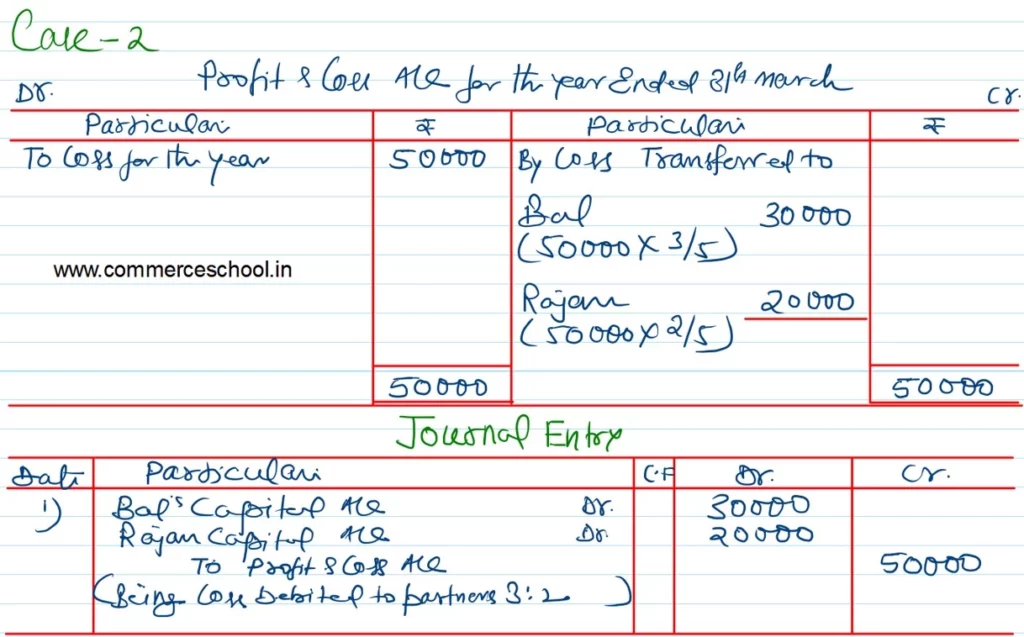 Case - 2
Profit & Loss A/c for the year Ended 31th March
Dr. Cr.
Particulars ₹ Particulars ₹
To Loss for the year 50000 By Loss Transferred to
Bal 30000
(50000 x 3/5)
www.commerceschool.in
Rajan 20000
(50000 x 2/5)
50000 50000
Journal Entry
Date Particulars C.F Dr. Cr.
1) Bal's Capital A/c Dr. 30000
Rajan Capital A/c Dr. 20000
To Profit & Loss A/c 50000
(Being Loss Debited to partners 3:2 )